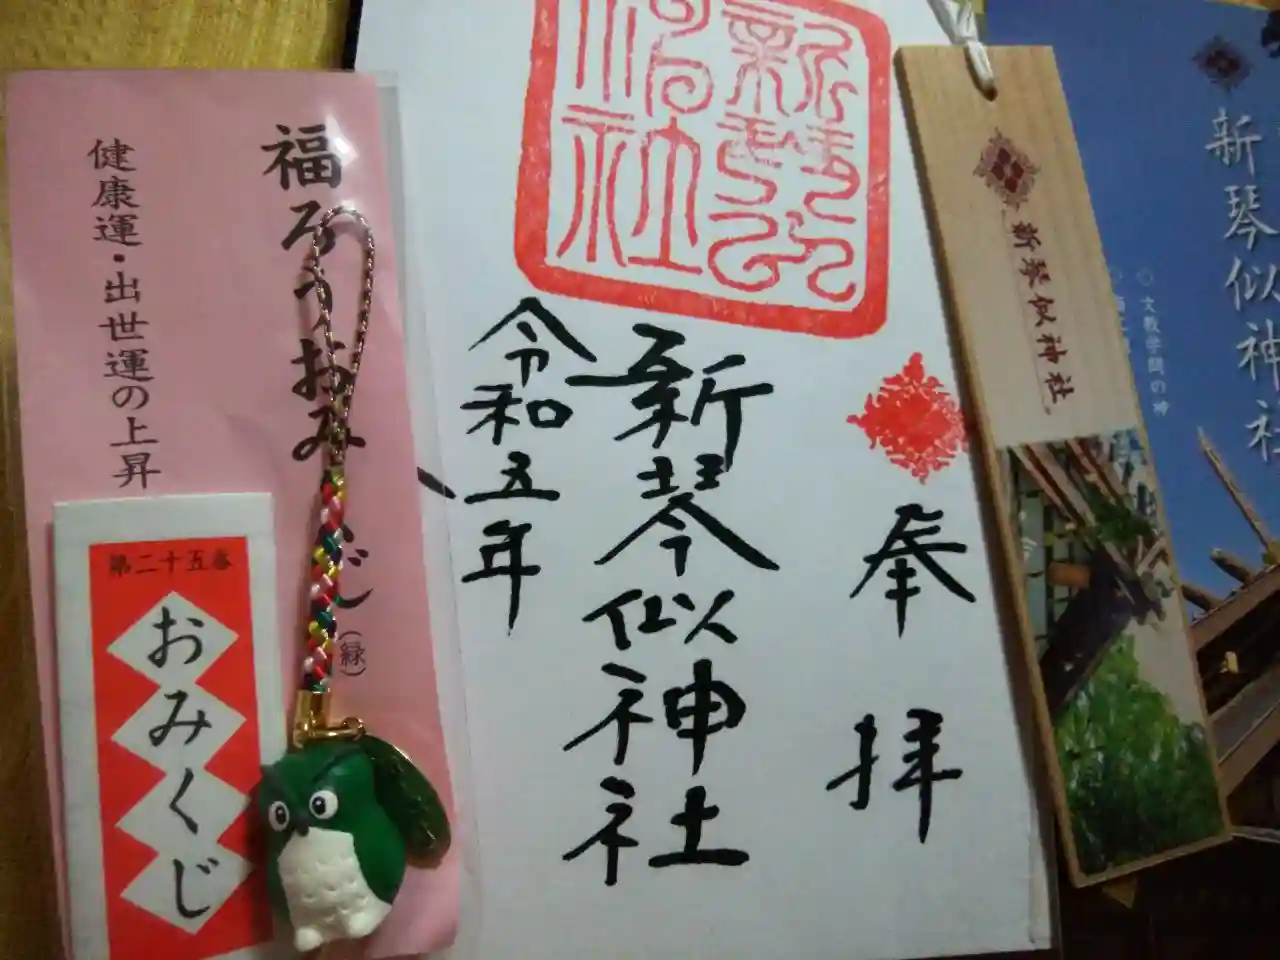 福ろうおみくじ(緑)
健康運・出世運の上昇
第二十五番
おみくじ
新琴似神社
奉拝
新琴似神社
令和五年
新琴似神社
新琴似神社
○文教学問の神